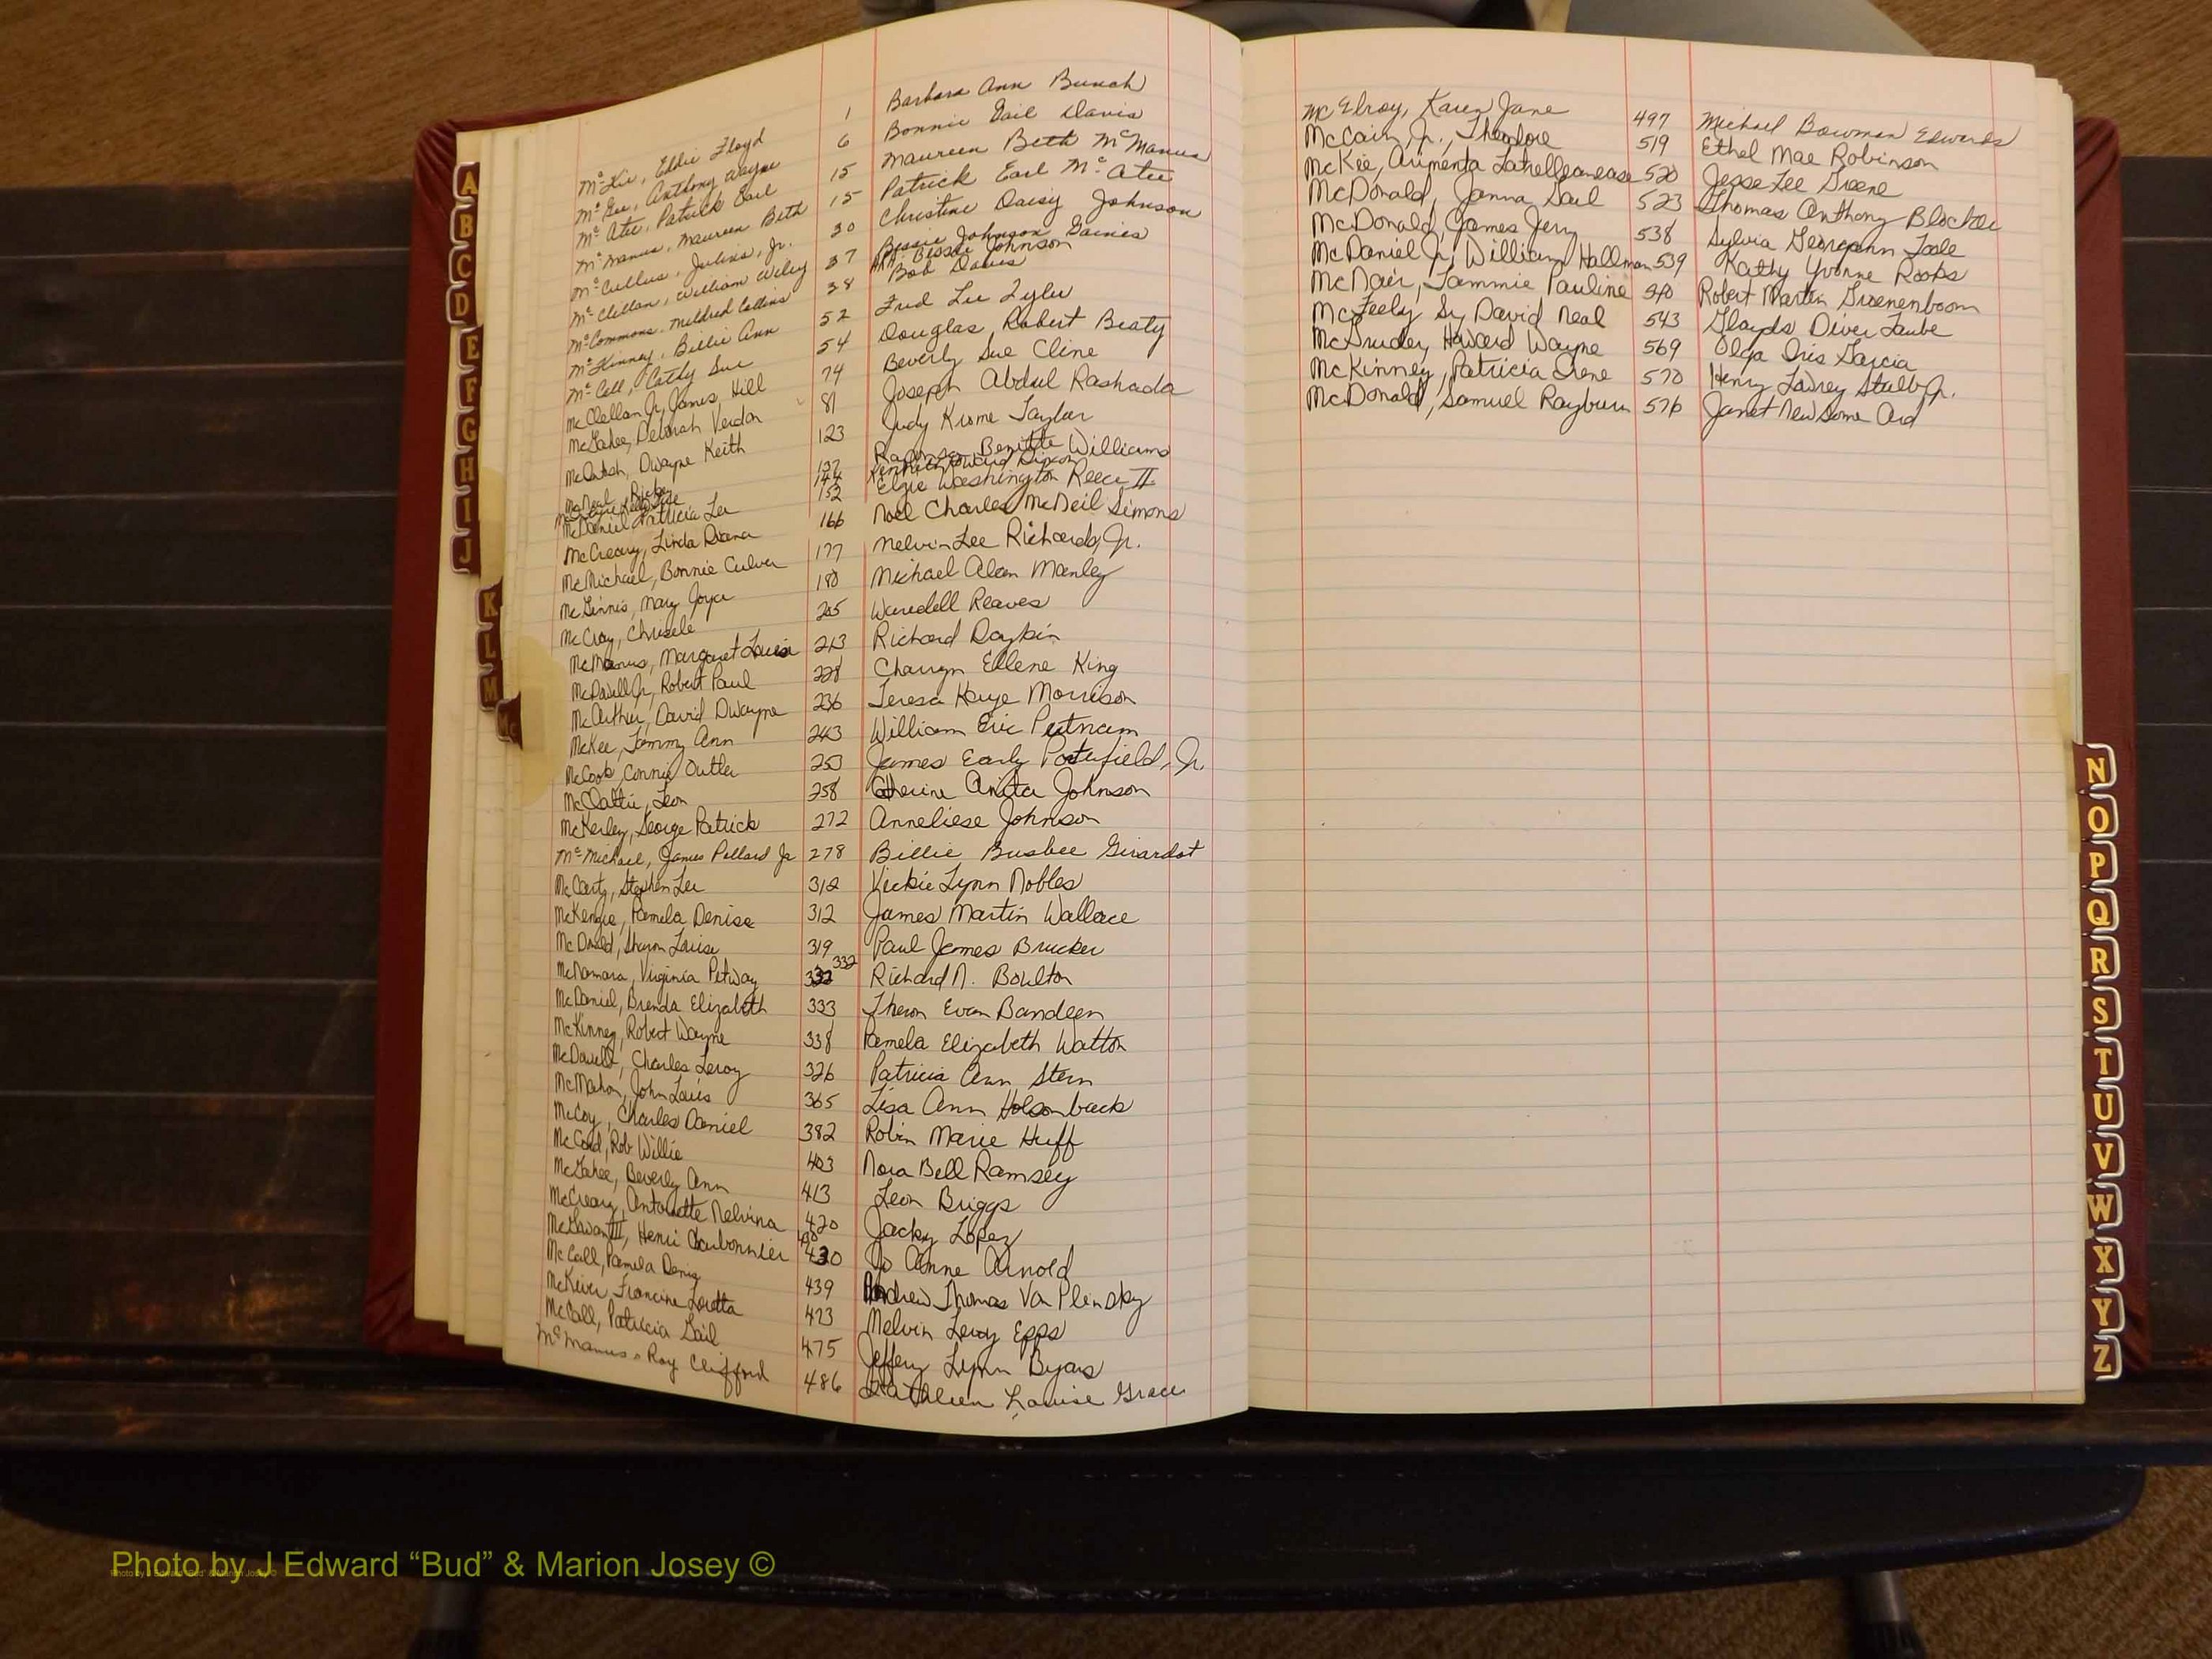 Mc Kie, Eddie Floyd 1 Barbara Ann Bunch
Mc Gee, Anthony Wayne 6 Bonnie Gail Davis
Mc Atee, Patrick Earl 15 Maureen Beth McManus
Mc Manus, Maureen Beth 15 Patrick Earl Mc Atee
Mc Cullus, Julius, Jr. 30 Christine Daisy Johnson
Mc Clellan, William Wiley 37 Bessie Johnson Gaines
AKA Bessie Johnson
Mc Commons, Mildred Collins 38 Bob Davis
Mc Kinney, Billie Ann 52 Fred Lee Tyler
Mc Cell, Cathy Sue 54 Douglas, Robert Beaty
McClellan Jr, James, Hill 74 Beverly Sue Cline
McGahee, Deborah Verdon 81 Joseph Abdul Rashada
McIntosh, Dwayne Keith 123 Judy Krome Taylor
McNeal, Ricky 137 Benette Williams
144 Kenneth Howard Dixon
McDaniel Patricia Lee 152 Elzie Washington Reece II
McCreary, Linda Diana 166 Noel Charles McNeil Simons
McMichael, Bonnie Culver 177 Melvin Lee Richards, Jr.
McGinnis, Mary Joyce 180 Michael Alan Manley
McCray, Chrisele 205 Wendell Reaves
McManus, Margaret Louise 213 Richard Daykin
McDowell Jr, Robert Paul 228 Charryn Ellene King
McArthur, David Dwayne 236 Teresa Kaye Morrison
McKee, Tammy Ann 243 William Eric Putnam
McCook, Connie Outler 253 James Early Porterfield, Jr.
McClattie, Leon 258 Catherine Anita Johnson
McKerley, George Patrick 272 Anneliese Johnson
Mc Michael, James Pollard Jr 278 Billie Busbee Girardot
McCarty, Stephen Lee 312 Vickie Lynn Nobles
McKenzie, Pamela Denise 312 James Martin Wallace
McDonald, Sharon Louise 319 Paul James Brucker
McNamara, Virginia Petway 332 332 Richard N. Boulton
McDaniel, Brenda Elizabeth 333 Theron Evan Bandeen
McKinney, Robert Wayne 338 Pamela Elizabeth Watton
McDowell, Charles Leroy 326 Patricia Ann Stern
McMahon, John Louis 365 Lisa Ann Holsonback
McCoy, Charles Daniel 382 Robin Marie Huff
McCord, Rob Willie 403 Nora Bell Ramsey
McGahee, Beverly Ann 413 Leon Briggs
McCreary, Antoinette Melvina 420 Jacky Lopez
McGowan III, Henri Charbonnier 430 430 Jo Anne Arnold
McCall, Pamela Denise 439 Andrew Thomas Van Plensky
McKeiver, Francine Loretta 473 Melvin Leroy Epps
McCall, Patricia Gail 475 Jeffery Lynn Byars
Mc Manus, Roy Clifford 486 Kathleen Louise Grace
McElroy, Karen Jane 497 Michael Bowman Edwards
McCain Jr., Theodore 519 Ethel Mae Robinson
McKie, Arimenta 520 Jesse Lee Greene
McDonald, Janna Gail 523 Thomas Anthony Blocker
McDonald, James Jerry 538 Sylvia Georgeann Toole
McDaniel Jr, William Hallman 539 Kathy Yvonne Roops
McNair, Tammie Pauline 540 Robert Martin Groenenboom
McFeely Sr, David Neal 543 Gladys Diver Taube
McGruder, Howard Wayne 569 Olga Iris Garcia
McKinney, Patricia Irene 570 Henry Lowrey Stulb Jr.
McDonald, Samuel Rayburn 576 Janet Newsome Ard
A
B
C
D
E
F
G
H
I
J
K
L
M
Mc
N
O
P
Q
R
S
T
U
V
W
X
Y
Z
Photo by J Edward “Bud” & Marion Josey ©
Photo by J Edward “Bud” & Marion Josey ©